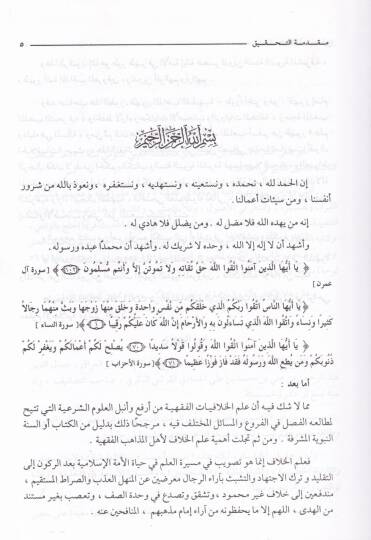 مقدمة التحقيق ٥
بسم الله الرحمن الرحيم
إن الحمد لله ، نحمده ، ونستعينه ، ونستهديه ، ونستغفره ، ونعوذ بالله من شرور
أنفسنا ، ومن سيئات أعمالنا .
إنه من يهده الله فلا مضل له . ومن يضلل فلا هادي له .
وأشهد أن لا إله إلا الله ، وحده لا شريك له . وأشهد أن محمدًا عبده ورسوله .
﴿ يَا أَيُّهَا الَّذِينَ آمَنُوا اتَّقُوا اللَّهَ حَقَّ تُقَاتِهِ وَلا تَمُوتُنَّ إِلاَّ وَأَنتُم مُّسْلِمُونَ ﴿١٠٢﴾ ﴾ [ سورة آل
عمرن ]
﴿ يَا أَيُّهَا النَّاسُ اتَّقُوا رَبَّكُمُ الَّذِي خَلَقَكُم مِّن نَّفْسٍ وَاحِدَةٍ وَخَلَقَ مِنْهَا زَوْجَهَا وَبَثَّ مِنْهُمَا رِجَالاً
كَثِيرًا وَنِسَاءً وَاتَّقُوا اللَّهَ الَّذِي تَسَاءَلُونَ بِهِ وَالأَرْحَامَ إِنَّ اللَّهَ كَانَ عَلَيْكُمْ رَقِيبًا ﴿١﴾ ﴾ [ سورة النساء ]
﴿ يَا أَيُّهَا الَّذِينَ آمَنُوا اتَّقُوا اللَّهَ وَقُولُوا قَوْلاً سَدِيدًا ﴿٧٠﴾ يُصْلِحْ لَكُمْ أَعْمَالَكُمْ وَيَغْفِرْ لَكُمْ
ذُنُوبَكُمْ وَمَن يُطِعِ اللَّهَ وَرَسُولَهُ فَقَدْ فَازَ فَوْزًا عَظِيمًا ﴿٧١﴾ ﴾ [ سورة الأحزاب ]
أما بعد :
مما لا شك فيه أن علم الخلافيات الفقهية من أرفع وأنبل العلوم الشرعية التي تتيح
لمطالعه الفصل في الفروع والمسائل المختلف فيه ، مرجحًا ذلك بدليل من الكتاب أو السنة
النبوية المشرفة . ومن ثم تجلت أهمية علم الخلاف لأهل المذاهب الفقهية .
فعلم الخلاف إنما هو تصويب في مسيرة العلم في حياة الأمة الإسلامية بعد الركون إلى
التقليد و ترك الاجتهاد والتشبث بآراء الرجال معرضين عن المنهل العذب والصراط المستقيم ،
مندفعين إلى خلاف غير محمود ، وتشقق وتصدع في وحدة الصف ، وتعصب بغير مستند
من الهدى ، اللهم إلا ما يحفظونه من آراء إمام مذهبهم ، المنافحين عنه .